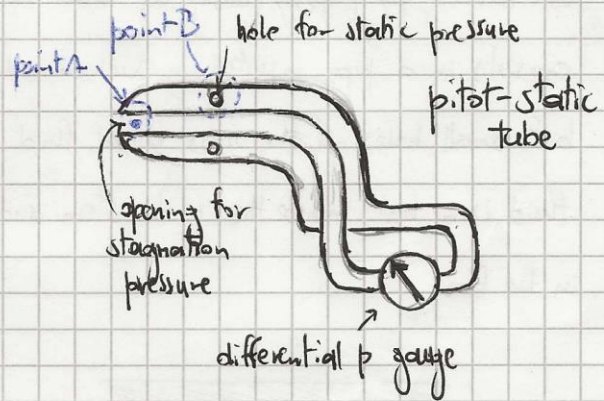 point B
hole for static pressure
point A
pitot-static
tube
opening for
stagnation
pressure
differential p gauge